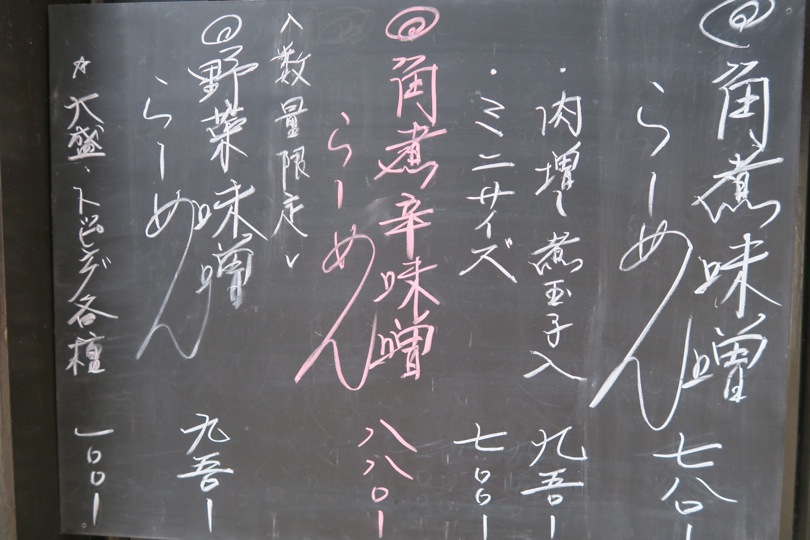 ◎角煮味噌
らーめん 七八〇ー
・肉増し煮玉子入 九五〇ー
・ミニサイズ 七〇〇ー
◎角煮辛味噌
らーめん 八八〇ー
〈数量限定〉
◎野菜味噌
らーめん 九五〇ー
☆大盛・トッピング各種 一〇〇ー